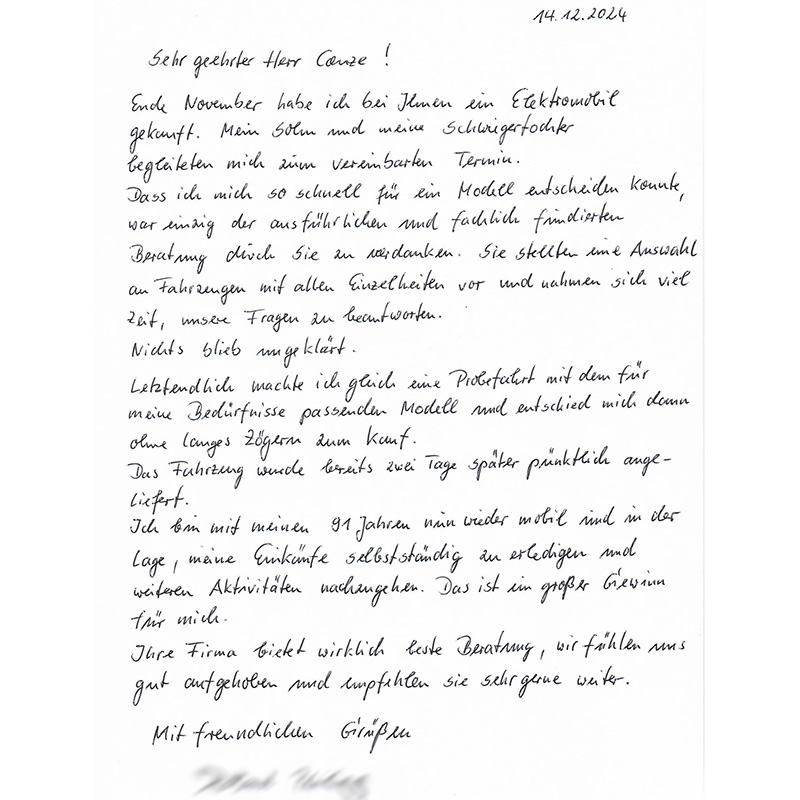 14.12.2024
Sehr geehrter Herr Coenze !
Ende November habe ich bei Ihnen ein Elektromobil
gekauft. Mein Sohn und meine Schwiegertochter
begleiteten mich zum vereinbarten Termin.
Dass ich mich so schnell für ein Modell entscheiden konnte,
war einzig der ausführlichen und fachlich fundierten
Beratung durch Sie zu verdanken. Sie stellten eine Auswahl
an Fahrzeugen mit allen Einzelheiten vor und nahmen sich viel
Zeit, unsere Fragen zu beantworten.
Nichts blieb ungeklärt.
Letztendlich machte ich gleich eine Probefahrt mit dem für
meine Bedürfnisse passenden Modell und entschied mich dann
ohne langes Zögern zum Kauf.
Das Fahrzeug wurde bereits zwei Tage später pünktlich ange-
liefert.
Ich bin mit meinen 91 Jahren nun wieder mobil und in der
Lage, meine Einkäufe selbstständig zu erledigen und
weiteren Aktivitäten nachzugehen. Das ist ein großer Gewinn
für mich.
Ihre Firma bietet wirklich beste Beratung, wir fühlen uns
gut aufgehoben und empfehlen sie sehr gerne weiter.
Mit freundlichen Grüßen